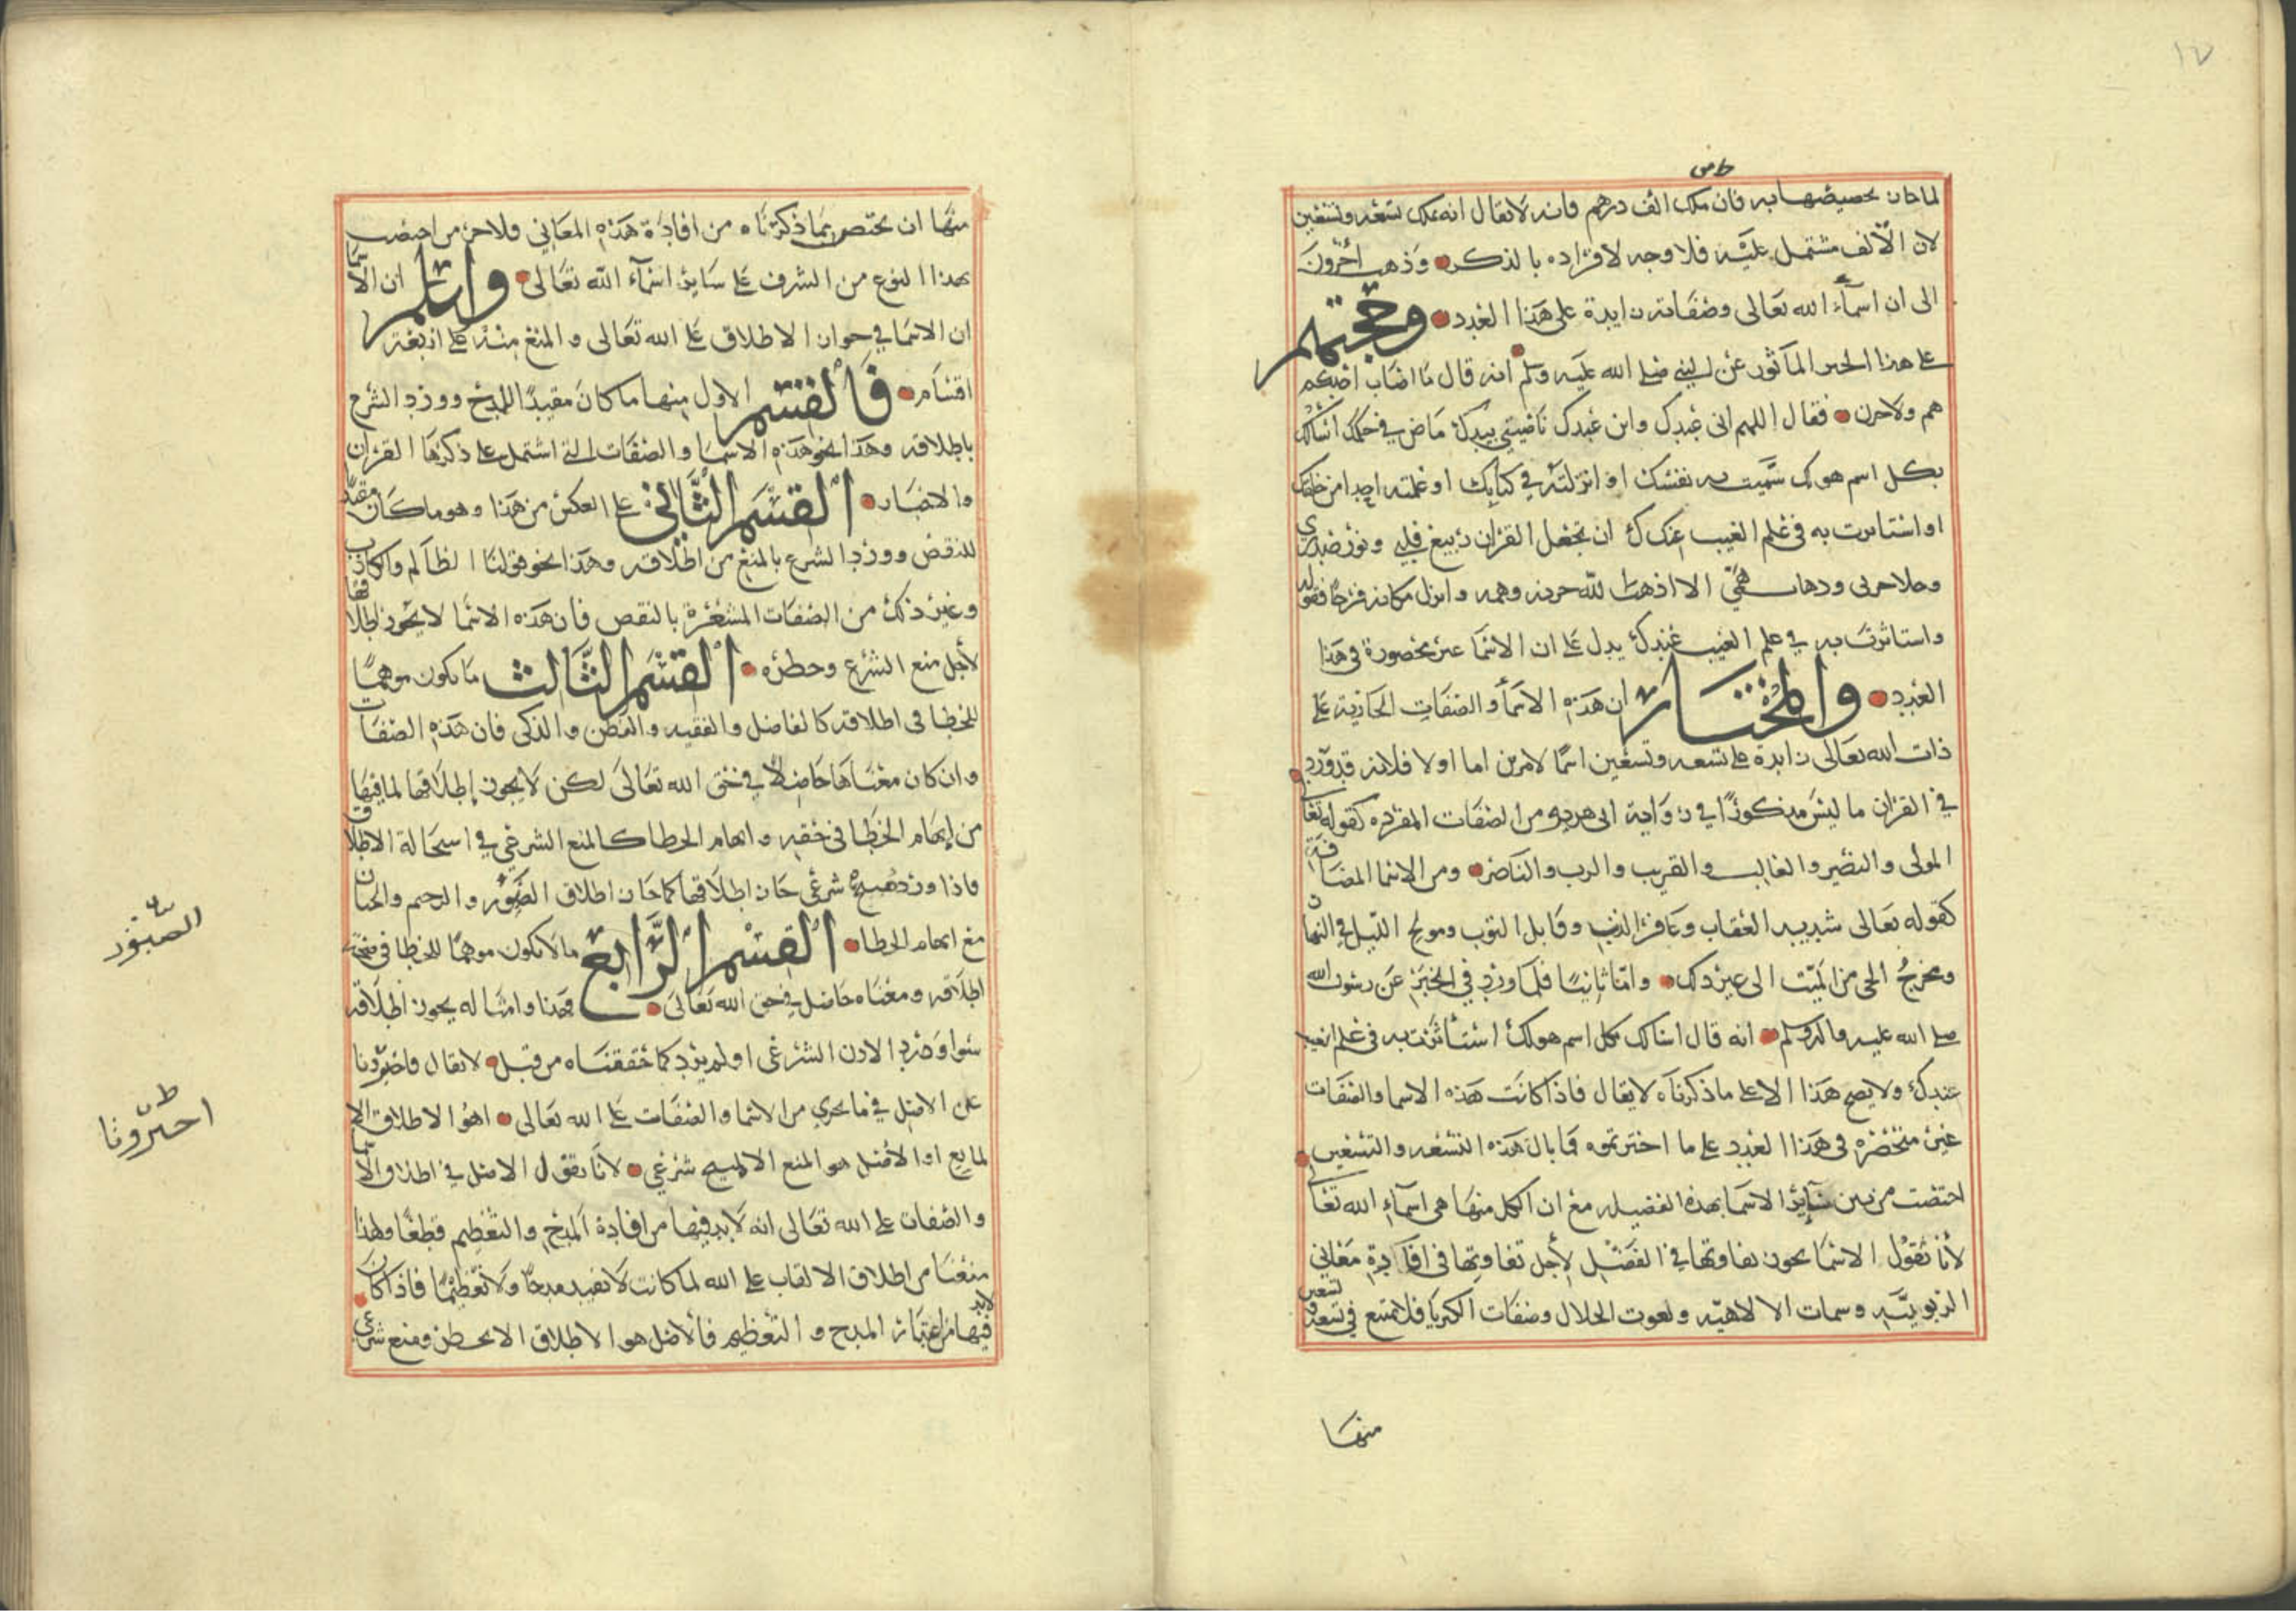 ١٧
لما كان تخصيصها به فان ملك الف درهم فانه لا يقال انه يملك تسعه وتسعين
لان الالف مشتمل عليه فلا وجه لافراده بالذكر وذهب اخرون
الى ان اسماء الله تعالى وصفاته زايدة على هذا العدد وحجتهم
على هذا الخبر المأثور عن النبي صلى الله عليه وسلم انه قال ما اصاب احدكم
هم ولا حزن فقال اللهم انى عبدك وابن عبدك ناصيتي بيدك ماض في حكمك اسألك
بكل اسم هو لك سميت به نفسك او انزلته في كتابك او علمته احدا من خلقك
او استاثرت به في علم الغيب عندك ان تجعل القران ربيع قلبي ونور صدري
وجلا حزنى وذهاب همي الا اذهب الله حزنه وهمه وابدل مكانه فرجا فقوله
واستاثرت به في علم الغيب عندك يدل على ان الاسما غير محصورة في هذا
العدد والمختار ان هذه الاسمأ والصفات الجارية على
ذات الله تعالى زايدة على تسعه وتسعين اسمًا لامرين اما اولا فلانه قد ورد
في القران ما ليس مذكورًا في رواية ابى هريره من الصفات المفرده كقوله تعالى
المولى والنصير والغالب والقريب والرب والناصر ومن الاسما المضافة
كقوله تعالى شديد العقاب وغافر الذنب وقابل التوب ومولج الليل في النهار
ومخرج الحي من الميت الى غير ذلك واما ثانيًا فلما ورد في الخبر عن رسول الله
صلى الله عليه واله وسلم انه قال اسالك بكل اسم هو لك استأثرت به في علم الغيب
عندك ولا يصح هذا الا على ما ذكرناه لا يقال فاذا كانت هذه الاسما والصفات
غير منحصره في هذا العدد على ما اخترتموه فما بال هذه التسعه والتسعين
اختصت من بين سائر الاسما بهذه الفضيله مع ان الكل منها هى اسماء الله تعالى
لأنا نقول الاسما يجوز تفاوتها في الفضل لأجل تفاوتها فى افادة معاني
الربوبيته وسمات الالاهيه ونعوت الجلال وصفات الكبريا فلا يمتنع في تسعه وتسعين
منها
منها ان يختص بما ذكرناه من افادة هذه المعاني فلا جرم اختصت
بهذا النوع من الشرف على سائر اسمآء الله تعالى واعلم ان الاسما
ان الاسما في جواز الاطلاق على الله تعالى والمنع منه على اربعة
اقسام فالقسم الاول منها ما كان مفيدًا للمدح وورد الشرع
باطلاقه وهذا نحو هذه الاسما والصفات التي اشتمل على ذكرها القران
والاخبار القسم الثاني على العكس من هذا وهو ما كان مفيدًا
للنقص وورد الشرع بالمنع من اطلاقه وهذا نحو قولنا الظالم والكاذب
وغير ذلك من الصفات المشعرة بالنقص فان هذه الاسما لا يجوز اطلاقها
لأجل منع الشرع وحظره القسم الثالث ما يكون موهمًا
للخطا فى اطلاقه كالفاضل والفقيه والفطن والذكى فان هذه الصفات
وان كان معناها حاصلا في حق الله تعالى لكن لا يجوز إطلاقها لما فيها
من إيهام الخطا فى حقه وايهام الخطا كالمنع الشرعي في استحالة الاطلاق
فاذا ورد مبيح شرعى جاز اطلاقها كما جاز اطلاق الصبور والرحيم والحنان
مع ايهام الخطا القسم الرابع ما لا يكون موهمًا للخطا فى صحة
اطلاقه ومعناه حاصل في حق الله تعالى فهذا وامثاله يجوز اطلاقه
سوا ورد الاذن الشرعى او لم يرد كما حققناه من قبل لا يقال فاخبرونا
عن الاصل في ما يجري من الاسما والصفات على الله تعالى اهو الاطلاق الا
لمانع او الاصل هو المنع الا لمبيح شرعي لأنا نقول الاصل في اطلاق الاسما
والصفات على الله تعالى انه لا بد فيها من افادة المدح والتعظيم قطعًا ولهذا
منعنا من اطلاق الالقاب على الله لما كانت لا تفيد مدحًا ولا تعظيمًا فاذا كان لا بد
فيها من اعتبار المدح والتعظيم فالاصل هو الاطلاق الا بحظر ومنع شرعي
الصبور
اخبرونا